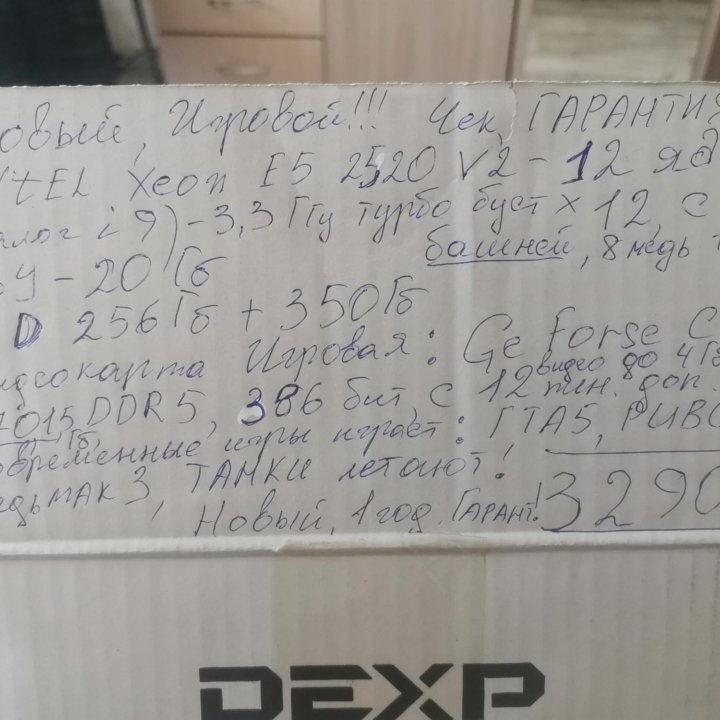 овый, Игровой!!! Чек, ГАРАНТИЯ
NTEL Xeon E5 2520 V2 - 12 яд
алог i 9) - 3,3 ГГц турбо буст х 12, с
башней, 8 медь т
ЗУ - 20 Гб
D 256 Гб + 350 Гб
идеокарта Игровая: Ge Forse G
видео до 4 Гб
1,5 Гб, DDR5, 386 бит, с 12 пин. доп.
овременные игры играет: ГТА5, PUBG
едьмак 3, ТАНКИ летают!
Новый, 1 год. Гарант! 3290
DEXP